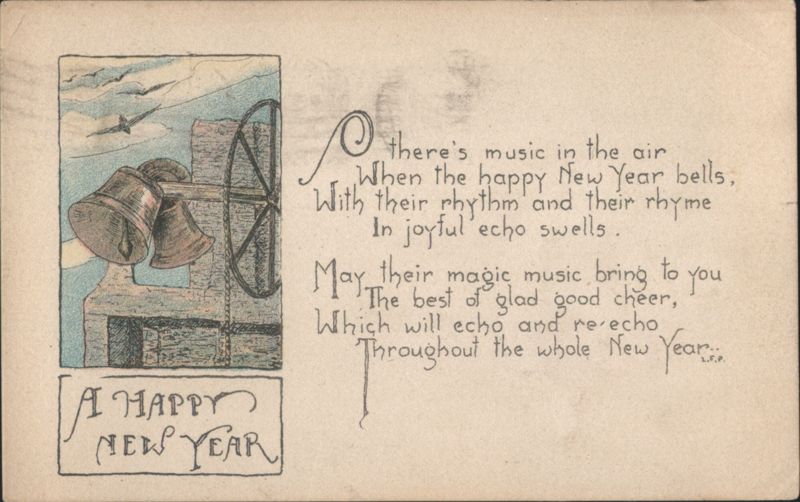 A HAPPY
NEW YEAR
O there's music in the air
When the happy New Year bells,
With their rhythm and their rhyme
In joyful echo swells.
May their magic music bring to you
The best of glad good cheer,
Which will echo and re-echo
Throughout the whole New Year..
L.F.P.